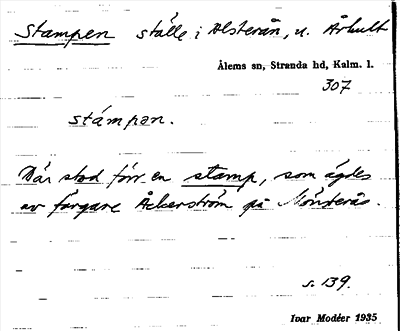 Stampen ställe i Alsterån, v. Århult
Ålems sn, Stranda hd, Kalm. l.
307
stámpan.
Där stod förr en stamp, som ägdes
av färgare Åkerström på Mönsterås.
s. 139.
Ivar Modéer 1935